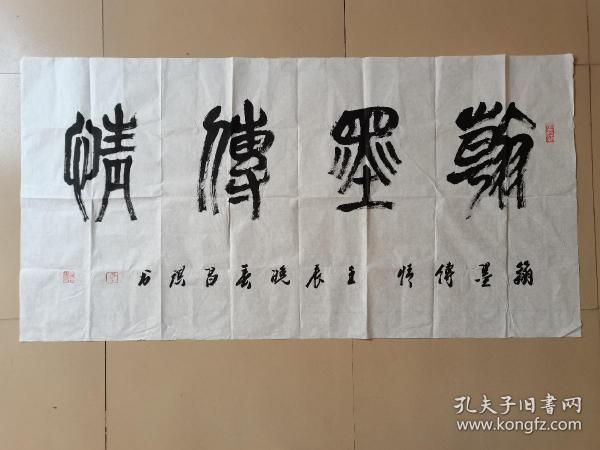 翰墨傳情
翰墨傳情 壬辰 晓春 昌洪 书
孔夫子旧书网
www.kongfz.com